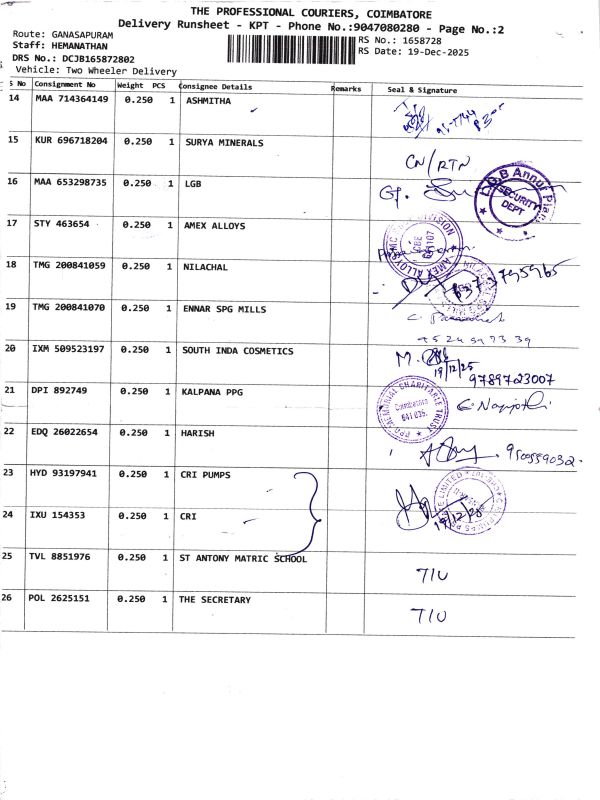 THE PROFESSIONAL COURIERS, COIMBATORE
Delivery Runsheet - KPT - Phone No.:9047080280 - Page No.:2
Route: GANASAPURAM
Staff: HEMANATHAN
DRS No.: DCJB165872802
Vehicle: Two Wheeler Delivery
RS No.: 1658728
RS Date: 19-Dec-2025
S No Consignment No Weight PCS Consignee Details Remarks Seal & Signature
14 MAA 714364149 0.250 1 ASHMITHA
15 KUR 696718204 0.250 1 SURYA MINERALS CN/RTN
16 MAA 653298735 0.250 1 LGB
SECURITY DEPT
17 STY 463654 0.250 1 AMEX ALLOYS
AMEX ALLOYS
18 TMG 200841059 0.250 1 NILACHAL
19 TMG 200841070 0.250 1 ENNAR SPG MILLS
20 IXM 509523197 0.250 1 SOUTH INDA COSMETICS
19/12/25
9789723007
21 DPI 892749 0.250 1 KALPANA PPG
PPG MEMORIAL CHARITABLE TRUST
Coimbatore
641 035.
22 EDQ 26022654 0.250 1 HARISH
23 HYD 93197941 0.250 1 CRI PUMPS
24 IXU 154353 0.250 1 CRI
19/12/25
25 TVL 8851976 0.250 1 ST ANTONY MATRIC SCHOOL T/U
26 POL 2625151 0.250 1 THE SECRETARY T/U